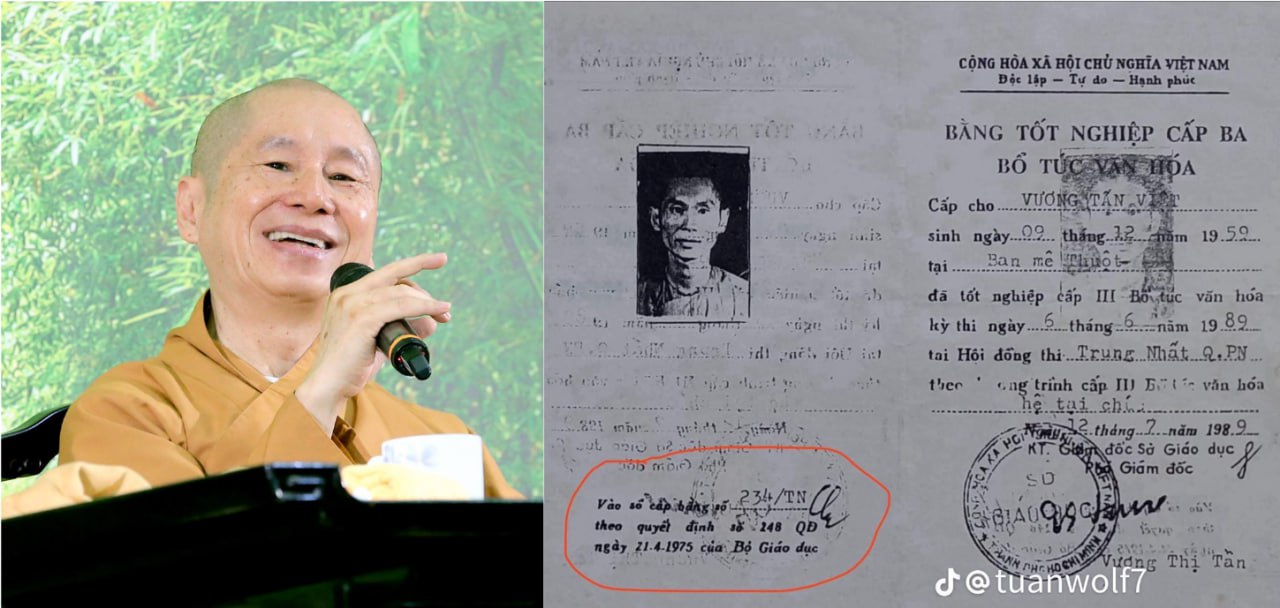 CỘNG HÒA XÃ HỘI CHỦ NGHĨA VIỆT NAM
Độc lập — Tự do — Hạnh phúc
BẰNG TỐT NGHIỆP CẤP BA
BỔ TÚC VĂN HÓA
Cấp cho VƯƠNG TẤN VIỆT
sinh ngày 09 tháng 12 năm 1959
tại Ban mê Thuột
đã tốt nghiệp cấp III Bổ túc văn hóa
kỳ thi ngày 6 tháng 6 năm 1989
tại Hội đồng thi Trung Nhất Q.PN
trình cấp III Bổ túc văn hóa
hệ tại
12 tháng 7 năm 1989
KT. Giám đốc Sở Giáo dục
Phó Giám đốc
SỞ
GIÁO DỤC
Vương Thị Tần
Vào sổ cấp bằng số 234/TN
theo quyết định số 248 QĐ
ngày 21-4-1975 của Bộ Giáo dục
@tuanwolf7